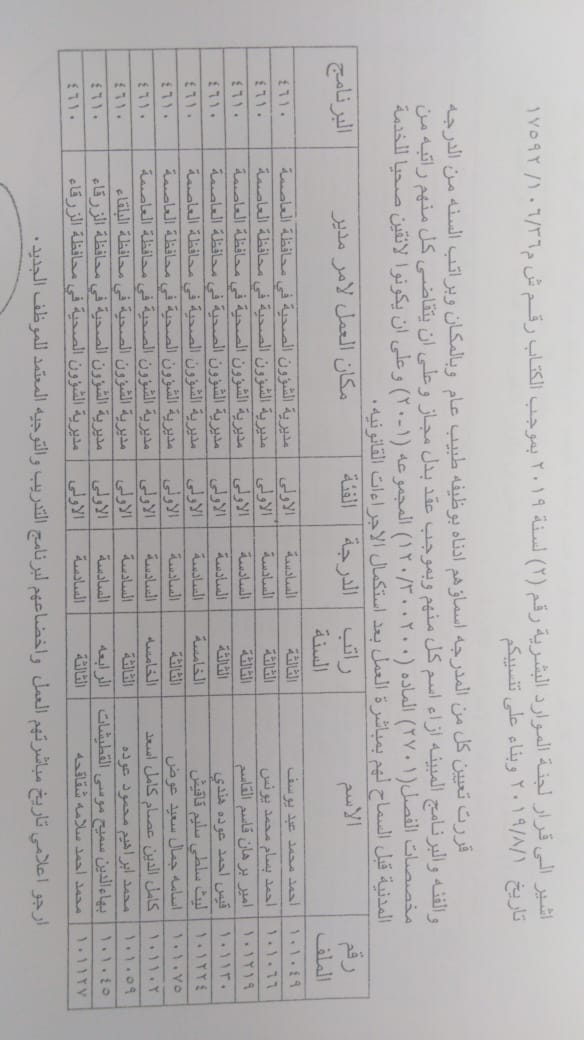 اشير الى قرار لجنة الموارد البشرية رقم (٢) لسنة ٢٠١٩ بموجب الكتاب رقم ش م١٠٦/٣٦/١٧٥٩٢
تاريخ ٢٠١٩/٨/١ وبناء على تنسيبكم
قررت تعيين كل من المدرجه اسماؤهم ادناه بوظيفه طبيب عام وبالمكان وبراتب السنه من الدرجه
والفئه والبرنامج المبينه ازاء اسم كل منهم وبموجب عقد بدل مجاز وعلى ان يتقاضى كل منهم راتبه من
مخصصات الفصل (٢٧٠١) الماده (١٢٠/٣٠٠٢٠٠) المجموعه (١-٢٠) وعلى ان يكونوا لائقين صحيا للخدمة
المدنية قبل السماح لهم بمباشرة العمل بعد استكمال الاجراءات القانونيه.
رقم الملف الاسم راتب السنة الدرجة الفئة مكان العمل لامر مدير البرنامج
١٠١٠٤٩ احمد محمد عبد يوسف الثالثة السادسة الاولى مديرية الشؤون الصحية في محافظة العاصمة ٤٦١٠
١٠١٠٦٦ احمد بسام محمد يونس الثالثة السادسة الاولى مديرية الشؤون الصحية في محافظة العاصمة ٤٦١٠
١٠١٢١٩ امير برهان قاسم القاسم الثالثة السادسة الاولى مديرية الشؤون الصحية في محافظة العاصمة ٤٦١٠
١٠١١٣٠ قيس احمد عوده هندي الثالثة السادسة الاولى مديرية الشؤون الصحية في محافظة العاصمة ٤٦١٠
١٠١٢٢٤ ليث سلطي سليم قاقيش الخامسة السادسة الاولى مديرية الشؤون الصحية في محافظة العاصمة ٤٦١٠
١٠١٠٧٥ اسامه جمال سعيد عوض الثالثة السادسة الاولى مديرية الشؤون الصحية في محافظة العاصمة ٤٦١٠
١٠١١٠٢ كامل الدين عصام كامل اسعد الخامسه السادسة الاولى مديرية الشؤون الصحية في محافظة العاصمة ٤٦١٠
١٠١٠٥٩ محمد ابراهيم محمود عوده الثالثة السادسة الاولى مديرية الشؤون الصحية في محافظة البلقاء ٤٦١٠
١٠١٠٤٥ بهاءالدين سميح موسى القطيشات الرابعه السادسة الاولى مديرية الشؤون الصحية في محافظة الزرقاء ٤٦١٠
١٠١١٢٧ محمد احمد سلامه شقاقحه الثالثة السادسة الاولى مديرية الشؤون الصحية في محافظة الزرقاء ٤٦١٠
ارجو اعلامي تاريخ مباشرتهم العمل واخضاعهم لبرنامج التدريب والتوجيه المعتمد للموظف الجديد.